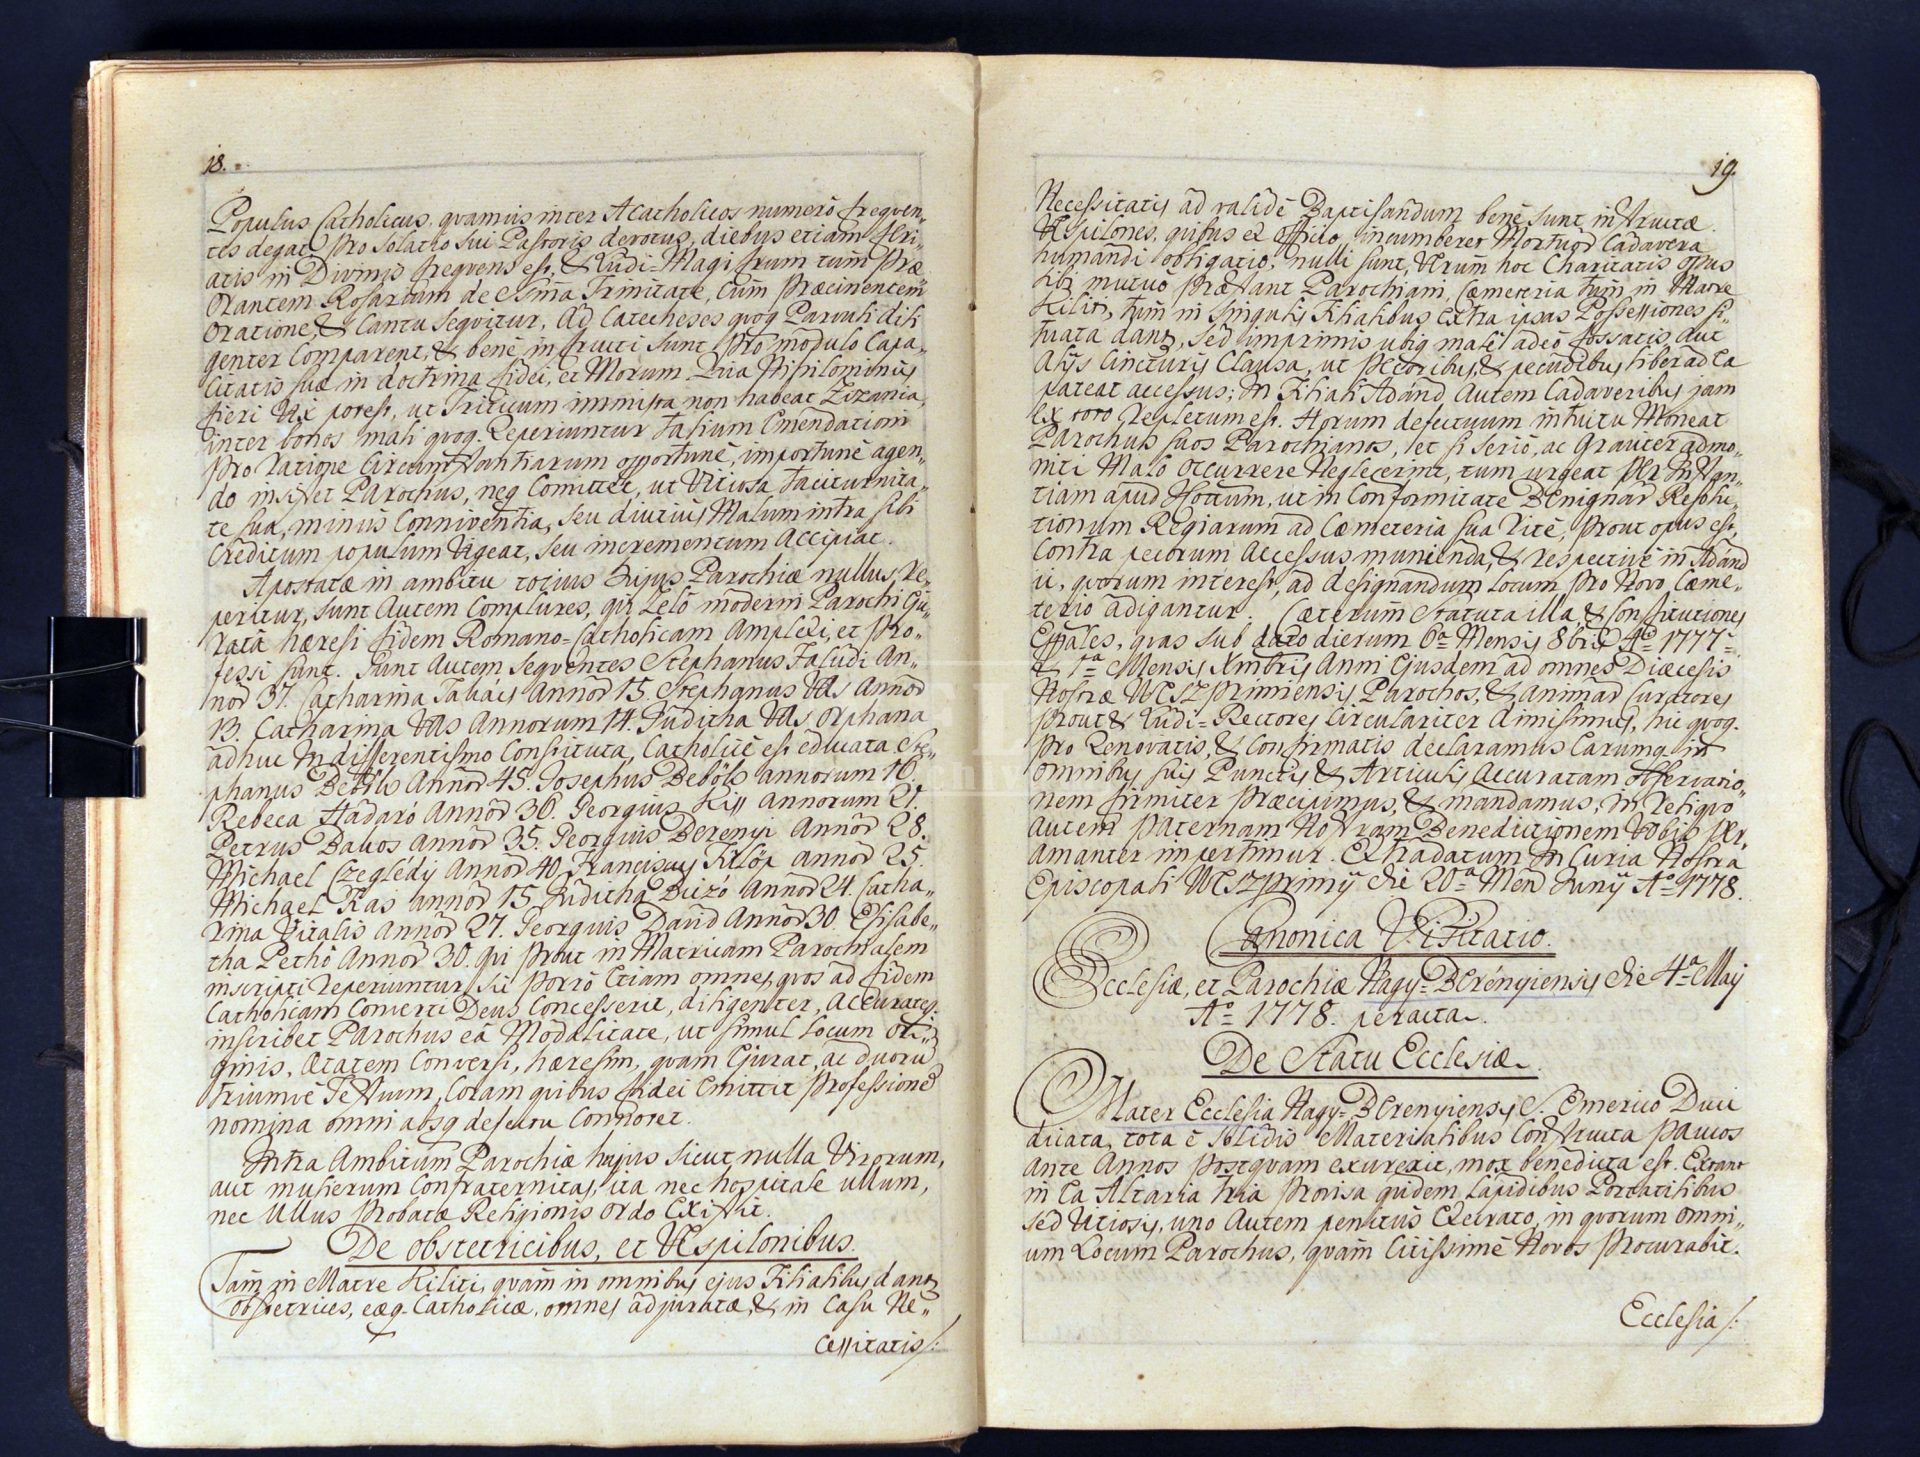 18.
Populus Catholicus, qvamvis inter Acatholicos numerô freqven„
tes degat, pro solatio sui Pastoris devotus, diebus etiam feri„
atis in Divinis freqvens est, & Ludi=Magistrum tum præ
Orantem Rosarium de SSma Trinitate, cum præcinentem
Oratione, & Cantu seqvitur. Ad Catecheses qvoq Parvuli dili
genter Comparent, & benè instructi sunt pro modulô Capa„
Citatis suæ in doctrina fidei, et Morum. Qvia Nihilominùs
fieri Vix potest, ut Triticum immixta non habeat Zizania,
inter bonos mali qvoq. Reperiuntur talium Emendationi
pro ratione Circumstantiarum opportunè, importunè agen„
do insistet Parochus, neq Comittet, ut Vitiosa taciturnita„
te sua, minùs Conniventia, seu diutiùs Malum intra sibi
Creditum populum Vigeat, seu incrementum Accipiat.
Apostatæ in ambitu totius Hujus Parochiæ nullus re„
peritur, sunt Autem Complures, qvi Zelô moderni Parochi Eju„
ratâ hæresi fidem Romano=Catholicam Amplexi, et pro„
fessi sunt. Sunt Autem seqventes Stephanus Faludi An„
nor 37. Catharina Takács Annor 15. Stephanus Vas Annor
13. Catharina Vas Annorum 14. Juditha Vas Orphana
adhuc Indifferentismo Constituta, Catholicè est educata Ste„
phanus Bebők Annor 45. Josephus Bebők annorum 16.
Rebeca Hadaró Annor 36. Georgius Kiss Annorum 21.
Petrus Bakos Annor 35. Georgius Berenyi Annor 28.
Michael Czeglédy Annor 40. Franciscus Fülöp Annor 25.
Michael Kas annor 15. Juditha Buzó Annor 24. Catha„
rina Vitalis Annor 27. Georgius David Annor 30. Elisabe„
tha Pethő Annor 30. qvi prout in Matricam Parochialem
inscripti reperiuntur, sic porrò Etiam omnes, qvos ad fidem
Catholicam Converti Deus Concesserit, diligenter, Accurateq.
inscribet Parochus eâ Modalitate, ut simul Locum Ori„
ginis, Ætatem Conversi, hæresim, qvam Ejurat, ac duorū
triumvè Testium, Coram qvibus fidei Emittit professionē
nomina omni absq defectu Connotet.
Intra Ambitum Parochiæ hujus sicut nulla Virorum,
aut mulierum Confraternitas, ita nec hospitale ullum,
nec Ullus Probatæ Religionis Ordo Existit.
De obstetricibus, et Vespilonibus.
Tam in Matre Kiliti, qvàm in omnibus ejus Filialibus dantr
obstetrices, eæq Catholicæ, omnes adjuratæ, & in Casu Ne„
cessitatis/:
19.
Necessitatis ad validè Baptisandum benè sunt instructæ.
Vespilones, qvibus ex officio incumberet Mortuor Cadavera
humandi obligatio, nulli sunt, Verùm hoc Charitatis opus
sibi mutuò præstant Parochiani, Cæmeteria tùm in Matre
Kiliti, tùm in singulis Filialibus extra ipsas Possessiones si„
tuata dantr, sed imprimis ubiq malè adeò fossatis, aut
Aliis Cincturis Clausa, ut pecoribus, & pecudibus liber ad Ea
pateat accessus; In Filiali Adánd Autem Cadaveribus jam
Ex toto repletum est. Horum defectuum intuitu Moneat
Parochus suos Parochianos, et si seriò, ac Graviter admo„
niti Malo Occurrere Neglexerint, tum urgeat per Instan„
tiam apud Cottum, ut in Conformitate Benignar Resolu„
tionum Regiarum ad Cæmeteria sua ritè, prout opus est,
Contra pecorum Accessus munienda, & respectivè in Adánd
ii, qvorum interest, ad designandum locum pro Novo Cæme„
terio adigantur. Cæterùm Statuta illa, & Constitutiones
Eppales, qvas sub dato dierum 6a Mensis 8bris Ao 1777.
& 1a Mensis Xmbris Anni Ejusdem ad omnes Diæcesis
Nostræ Weszprimiensis Parochos, & animar Curatores
prout & Ludi=Rectores Circulariter dimisimus, hic qvoq.
pro Renovatis, & Confirmatis declaramus Earumq in
omnibus suis Punctis & Articulis Accuratam observatio„
nem firmiter præcipimus, & mandamus, in reliqvo
Autem Paternam Nostram Benedictionem Vobis per„
amanter impertimur. Extradatum in Curia Nostra
Episcopali Weszprimii die 20a Mens Junii Ao 1778.
Canonica Visitatio.
Ecclesiæ, et Parochiæ Nagy=Berényiensis die 4a Maij
Ao 1778. peracta.
De Statu Ecclesiæ.
Mater Ecclesia Nagy=Berenyiensis S. Emerico Duci
dicata, tota è solidis Materialibus Constructa paucos
ante Annos postqvam exurexit, mox benedicta est. Extant
in Ea Altaria tria provisa qvidem Lapidibus Portatilibus
sed Vitiosis, uno Autem penitùs Execrato, in qvorum omni„
um Locum Parochus, qvàm Citissimè Novos procurabit.
Ecclesia/: